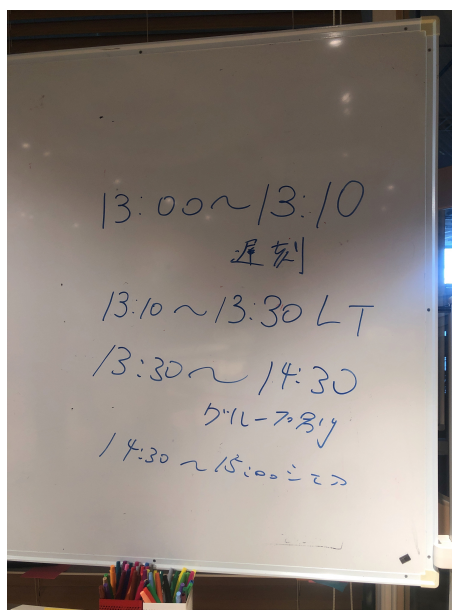 13:00〜13:10
遅刻
13:10〜13:30 LT
13:30〜14:30
グループ別
14:30〜15:00